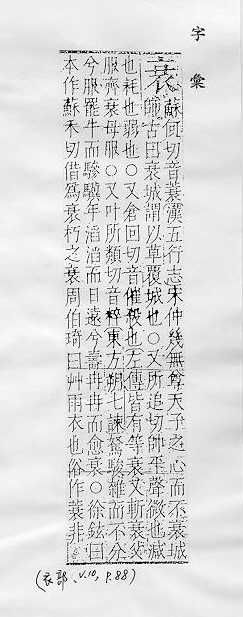 字彙
衰蘇何切音蓑漢五行志宋仲幾無尊天子之心而不衰城
師古曰衰城謂以草覆城也○又所追切帥平聲微也減
也耗也弱也○又倉回切音催殺也左傳皆有等衰又斬衰喪
服齊衰母服○又叶所類切音粹東方朔七諫駑駿雜而不分
兮服罷牛而驂驥年滔滔而日遠兮壽冉冉而愈衰○徐鉉曰
本作蘇禾切借爲衰朽之衰周伯琦曰艸雨衣也俗作蓑非
(衣部, v.10, p.88)